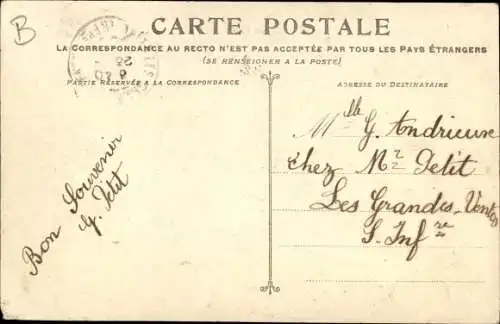 B
CARTE POSTALE
LA CORRESPONDANCE AU RECTO N'EST PAS ACCEPTÉE PAR TOUS LES PAYS ÉTRANGERS
(SE RENSEIGNER A LA POSTE)
PARTIE RÉSERVÉE A LA CORRESPONDANCE
ADRESSE DU DESTINATAIRE
Bon Souvenir
G. Petit
Mlle G. Andrieux
chez Mr Petit
Les Grandes-Ventes
S. Infre